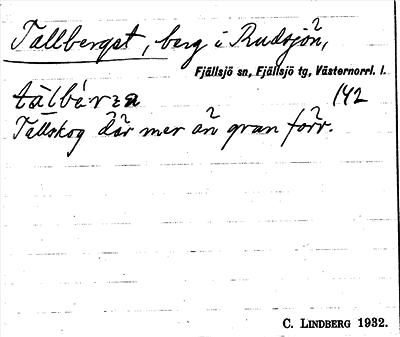 Tallberget, berg i Rudsjön,
Fjällsjö sn, Fjällsjö tg, Västernorrl. l.
tàlbárza 142
Tallskog där mer än gran förr.
C. LINDBERG 1932.